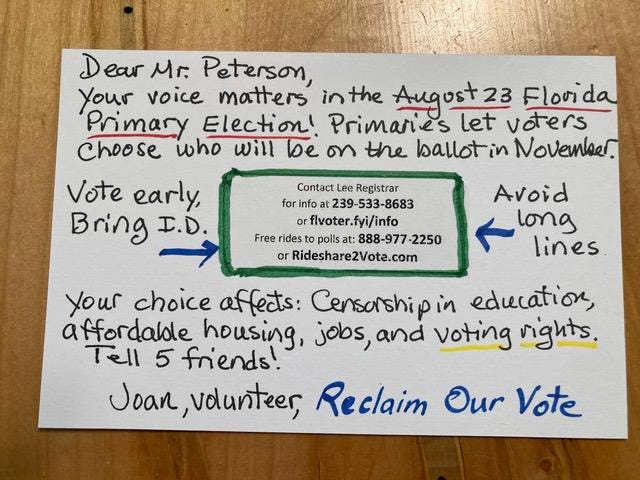 Dear Mr. Peterson,
Your voice matters in the August 23 Florida
Primary Election! Primaries let voters
choose who will be on the ballot in November.
Vote early,
Bring I.D.
Contact Lee Registrar
for info at 239-533-8683
or flvoter.fyi/info
Free rides to polls at: 888-977-2250
or Rideshare2Vote.com
Avoid
long
lines
Your choice affects: Censorship in education,
affordable housing, jobs, and voting rights.
Tell 5 friends!
Joan, volunteer, Reclaim Our Vote